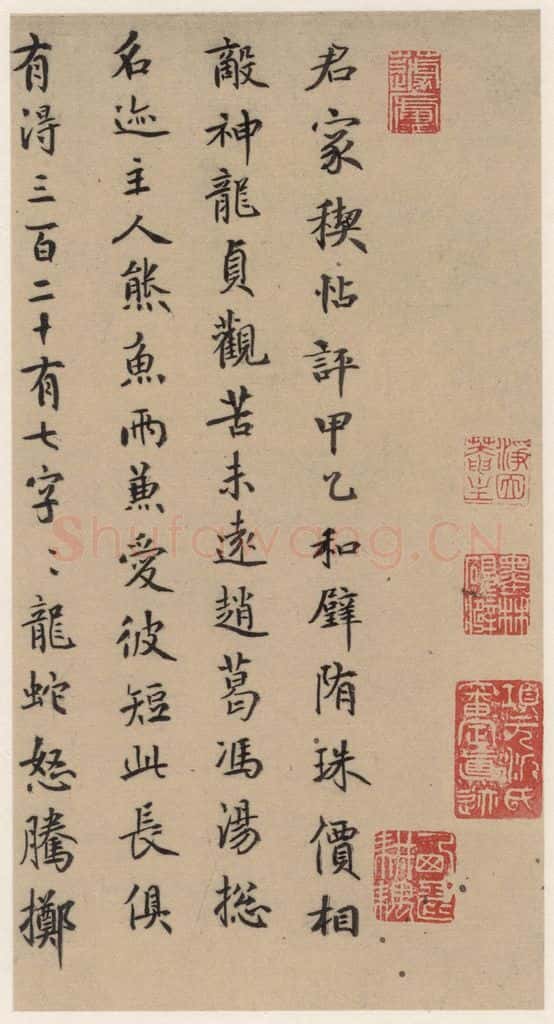 君家稧帖評甲乙和璧隋珠價相
敵神龍貞觀苦未遠趙葛馮湯揔
名迹主人熊魚兩兼愛彼短此長俱
有得三百二十有七字〻龍蛇怒騰擲
Shufawang.CN
項元汴氏審定真跡